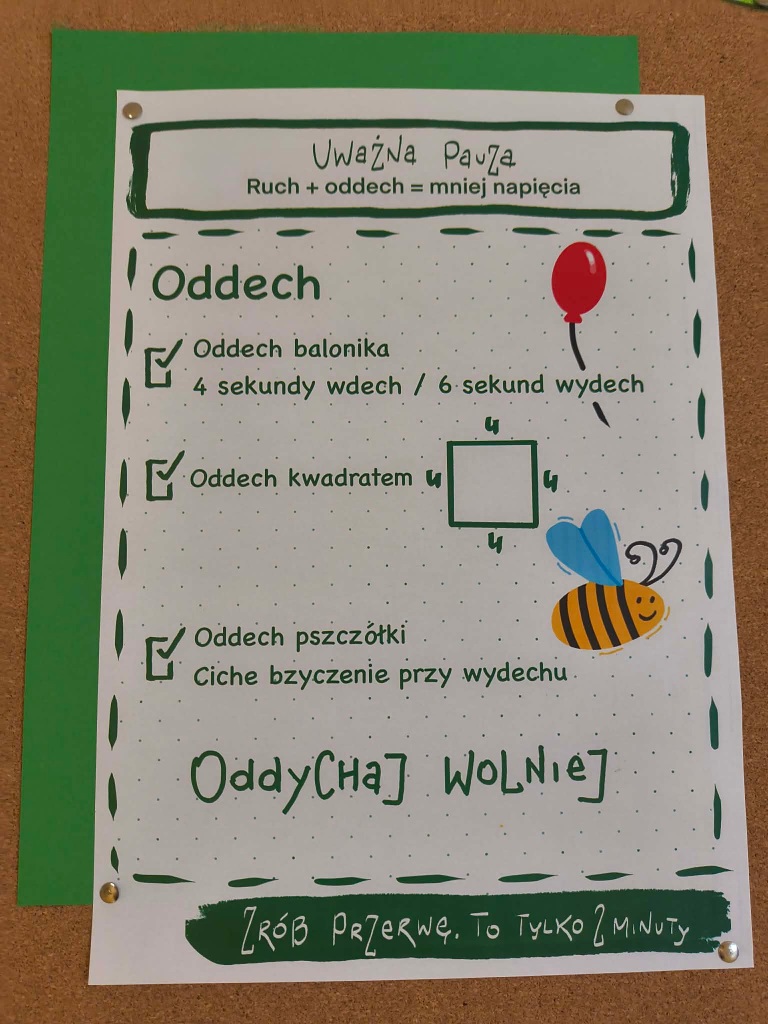 Uważna Pauza
Ruch + oddech = mniej napięcia
Oddech
Oddech balonika
4 sekundy wdech / 6 sekund wydech
4
Oddech kwadratem 4 4
4
Oddech pszczółki
Ciche bzyczenie przy wydechu
Oddychaj wolniej
Zrób przerwę. To tylko 2 minuty